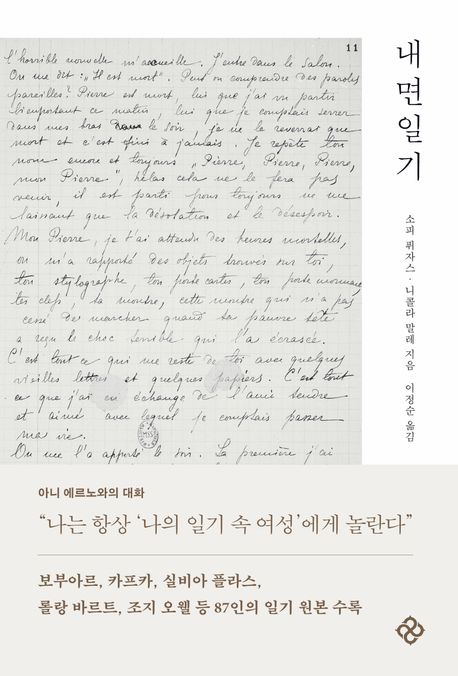 11
l'horrible nouvelle m'accueille. J'entre dans le salon.
On me dit : "Il est mort". Peut on comprendre des paroles
pareilles? Pierre est mort, lui que j'ai vu partir
bienportant ce matin, lui que je comptais serrer
dans mes bras le soir, je ne le reverrai que
mort et c'est fini à jamais. Je répète ton
nom encore et toujours "Pierre, Pierre, Pierre,
mon Pierre", hélas cela ne le fera pas
venir, il est parti pour toujours ne me
laissant que la désolation et le désespoir.
Mon Pierre, je t'ai attendu des heures mortelles,
on m'a rapporté des objets trouvés sur toi,
ton stylographe, ton porte cartes, ton porte monnaie,
tes clefs, ta montre, cette montre qui n'a pas
cessé de marcher quand ta pauvre tête
a reçu le choc terrible qui l'a écrasée.
C'est tout ce qui me reste de toi avec quelques
vieilles lettres et quelques papiers. C'est tout
ce que j'ai en échange de l'ami tendre
et aimé avec lequel je comptais passer
ma vie.
On me l'a apporté le soir. La première j'ai
내면일기
소피 퓌자스·니콜라 말레 지음
이정순 옮김
아니 에르노와의 대화
“나는 항상 ‘나의 일기 속 여성’에게 놀란다”
보부아르, 카프카, 실비아 플라스,
롤랑 바르트, 조지 오웰 등 87인의 일기 원본 수록